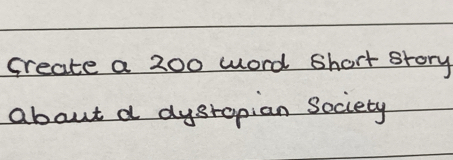 Create a 200 word Short Story
about a dystopian Society